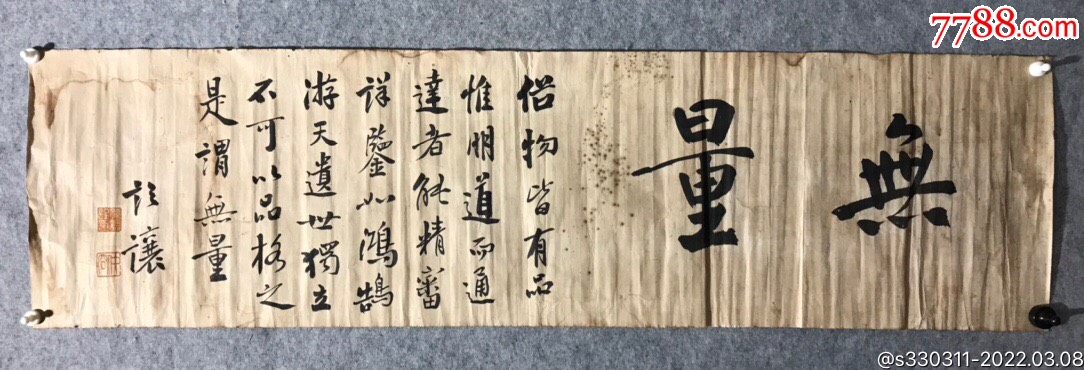 7788.com
無量
俗物皆有品
惟朋道而通
達者能精審
詳鑒如鴻鵠
游天遺世獨立
不可以品格之
是謂無量
詒讓
@s330311-2022.03.08